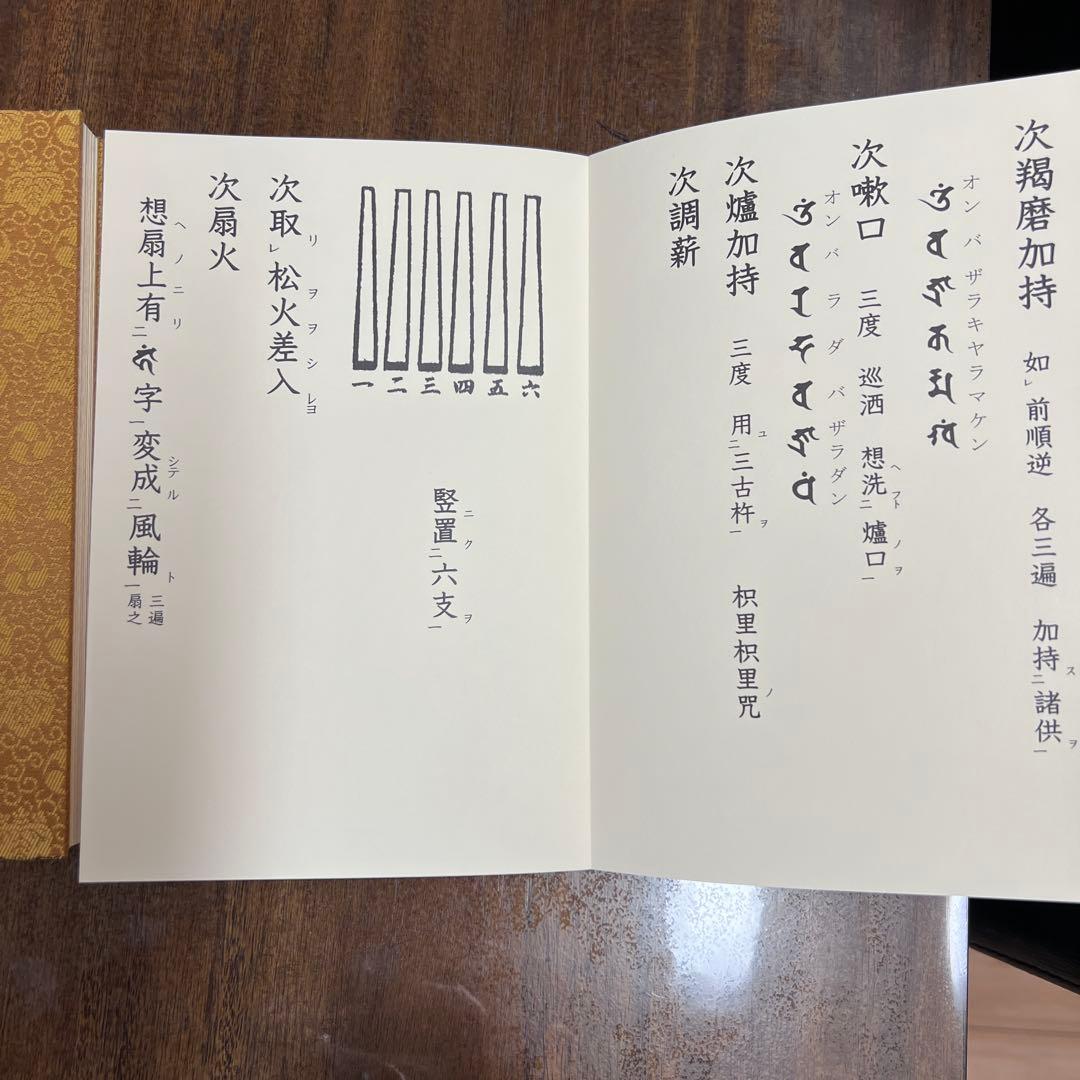 次羯磨加持 如レ前順逆 各三遍 加持スニ諸供ヲ一
オン バ ザラ キヤラ マ ケン
次嗽口 三度 巡洒 想ヘ洗フトニ爐口ノヲ一
オン バ ラ ダ バ ザラ ダン
次爐加持 三度 用ユニ三古杵ヲ一 枳里枳里ノ咒
次調薪
六
五
四
三
二
一
竪ニ置クニ六支ヲ一
次取リレ松火ヲヲ差シ入レヨ
次扇火
想ヘ扇ノ上ニ有リニ𑖮𑖽字一変シテ成ルニ風輪ト一 三遍
扇之